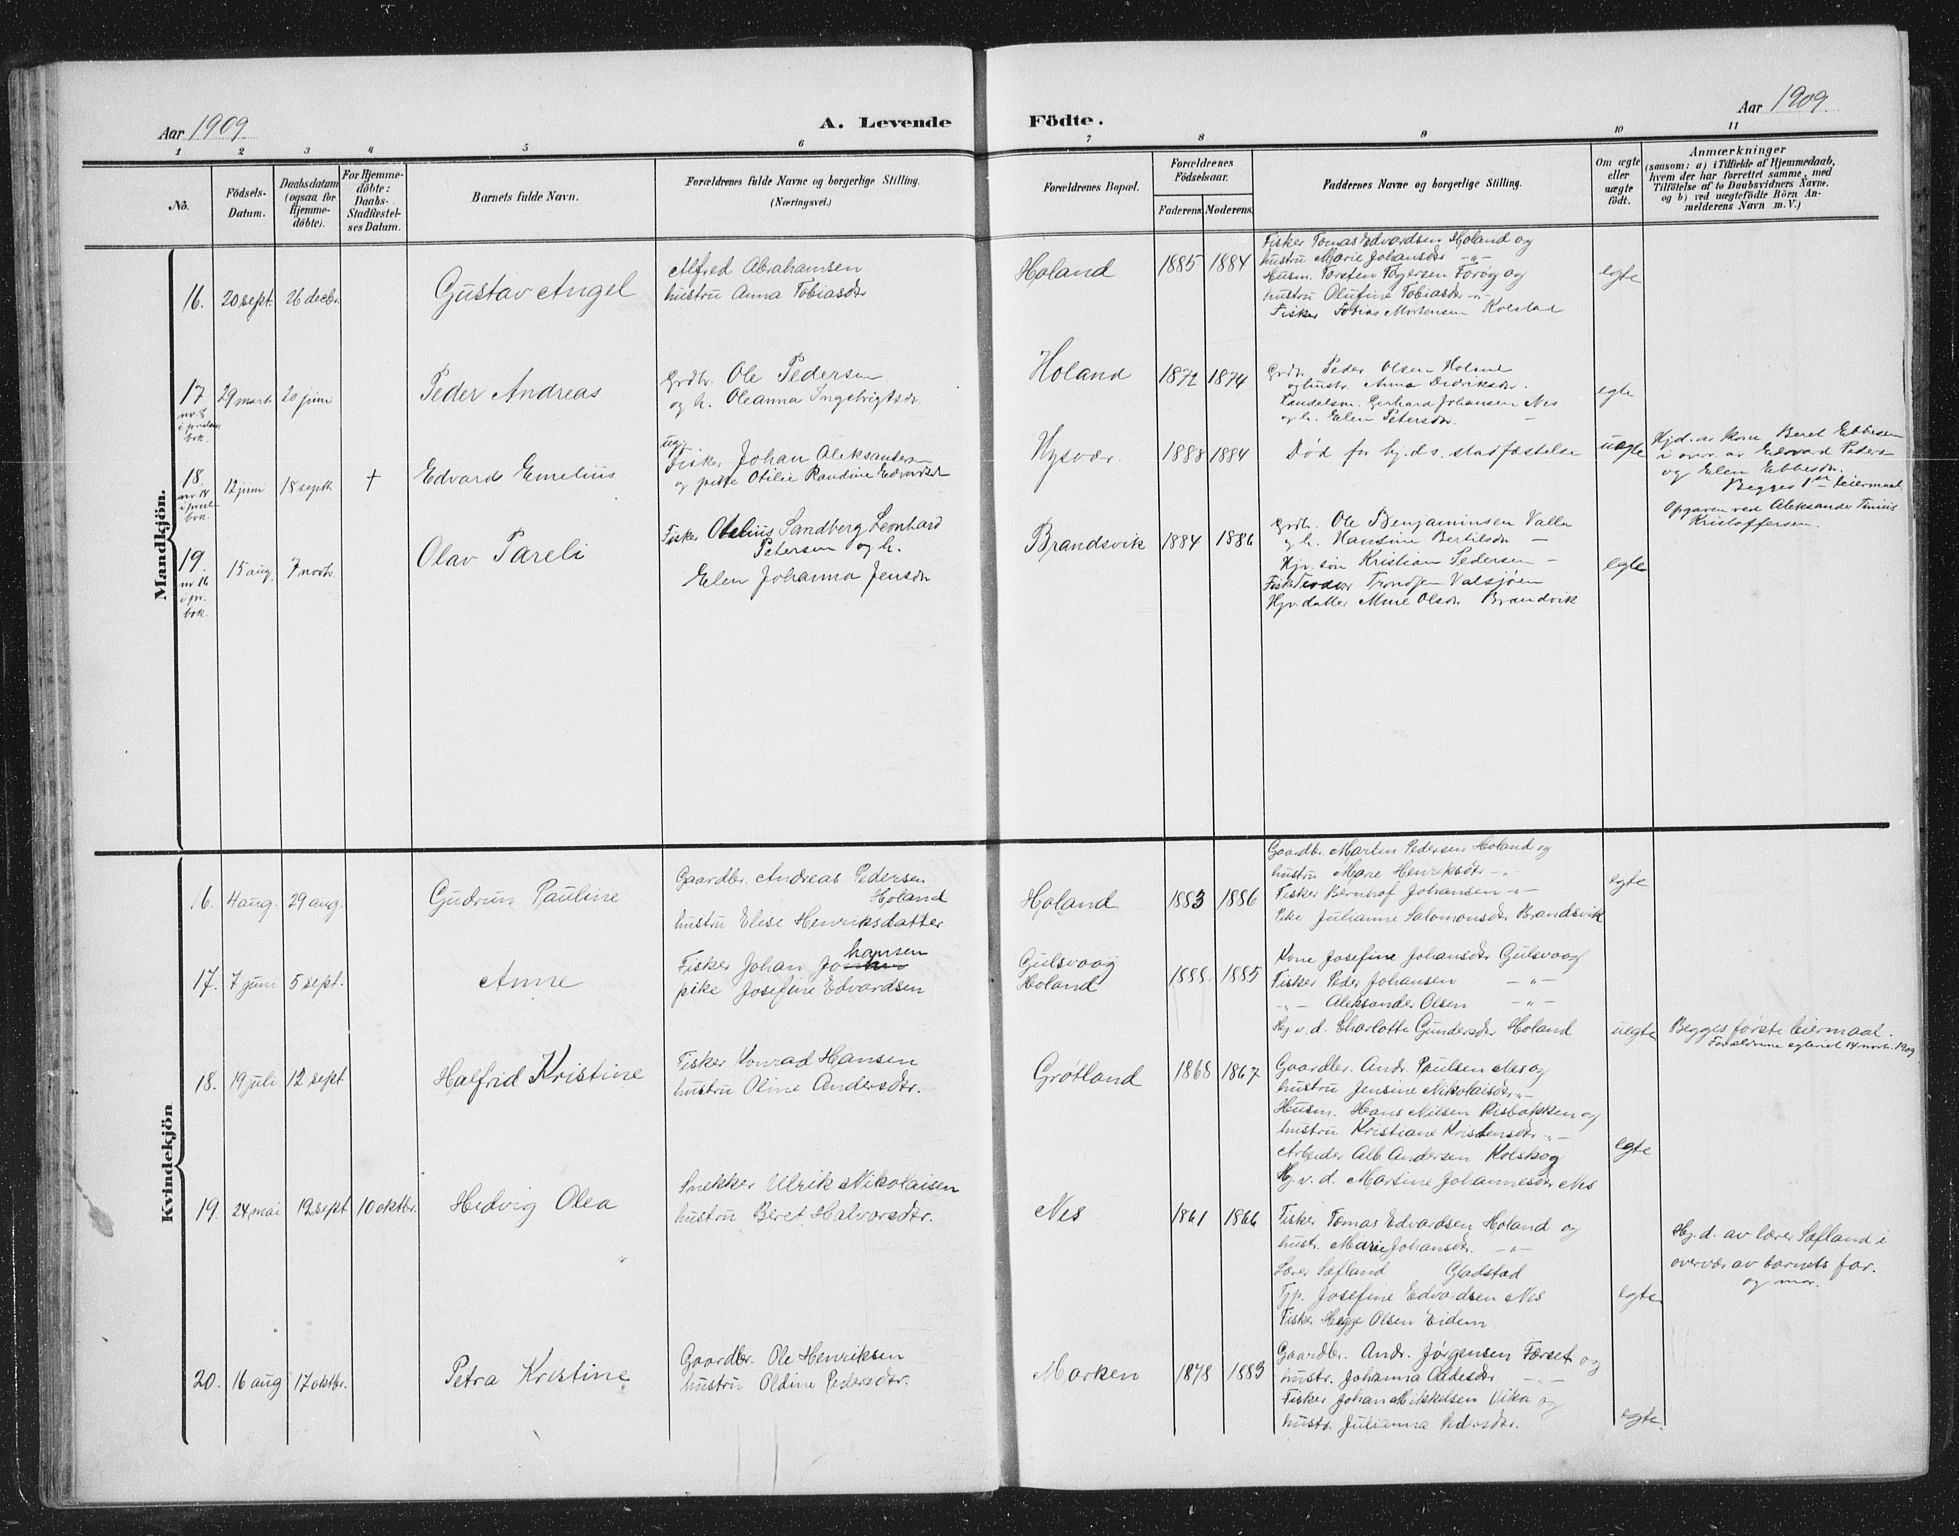 Aar 1909
A. Levende
Födte.
Aar 1909
1 2 3 4 5 6 7 8 9 10 11
No.
Födsels-
Datum.
Daabsdatum
(ogsaa for
Hjemme-
döbte).
For Hjemme-
döbte:
Daabs-
Stadfæstel-
ses Datum.
Barnets fulde Navn.
Forældrenes fulde Navne og borgerlige Stilling.
(Næringsvei.)
Forældrenes Bopæl.
Forældrenes
Födselsaar.
Faderens. Moderens.
Faddernes Navne og borgerlige Stilling.
Om ægte
eller
uægte
födt.
Anmærkninger
(saasom: a) i Tilfælde af Hjemmedaab,
hvem der har forrettet samme, med
Tilföielse af to Daabsvidners Navne.
og b) ved uægteföd​te Börn An-
melderens Navn m. V.)
Mandkjön.
16. 20 sept. 26 decbr. Gustav Angel
Alfred Abrahamsen
hustru Anna Tobiasdtr
Holand 1885 1884
Fisker Tomas Edvardsen Holand og
hustru Marie Johansdtr -"-
Husm. Torsten Torgersen Forøy og
hustru Olufine Tobiasdtr -"-
Fisker Tobias Mortensen Kolstad
egte
17
nr 8
i prstens
bok.
29 marts 20 juni Peder Andreas
Grdbr. Ole Pedersen
og h. Oleanna Ingebrigtsdr.
Holand 1872 1874
Grdbr. Peder Olsen Holand
og hustr. Anna Didriksdr.
Landelsm. Gerhard Johansen Nes
og h. Elen Petersdtr. -
egte
18
nr 14
i prest.
bok.
12 juni 18 septb + Edvard Emelius
ugj.
Fisker Johan Aleksandersen
og pike Otilie Randine Edvardsdr
Hysvær. 1888 1884
Død før hj.d.s. stadfæstelse
uegte
Hjd. av kone Beret Ebbesen
i over. av Edvard Peders.
og Elen Ebbesdr.
Begges 1ste leiermaal
Opgaven ved Aleksander Tinius
Kristoffersen.
19
nr 16
i pr.
bok.
15 aug. 7 novbr Olav Pareli
Fisker Otelius Sandberg Leonhard
Petersen og h.
Elen Johanna Jensdr
Brandsvik 1884 1886
Grdb. Ole Benjaminsen Valla
og h. Hansine Bertilsdr -
Hjv. søn Kristian Pedersen -
Fisk Teodor Trondsen Valsjøen
Hjv. datter Mine Olsdr Brandvik
egte
Kvindekjön
16. 4 aug. 29 aug. Gudrun Pauline
Gaardbr. Andreas Pedersen
Holand
hustru Elise Henriksdatter
Holand 1883 1886
Gaardbr. Martin Pedersen Holand og
hustru Marie Henriksdtr -"-
Fisker Bernhof Johansen -"-
Pike Julianne Salomonsdtr Brandsvik
egte
17. 7 juni 5 sept. Anne
hansen
Fisker Johan
pike Josefine Edvardsen
Gulsvaag
Holand
1888 1885
Kone Josefine Johansdtr Gulsvaag
Fisker Peder Johansen -"-
-"- Aleksander Olsen -"-
Hj. v. d. Charlotte Gundersdtr Holand
uegte
Begges første leiermaal.
Forældrene egteviet 14 novbr. 1909
18. 19 juli 12 sept Halfrid Kristine
Fisker Konrad Hansen
hustru Oline Andersdtr.
Grøtland 1868 1867
Gaardbr. Andr. Paulsen Nes og
hustru Jensine Nikolaisdtr -"-
Husm. Hans Nilsen Risbakken og
hustru Kristiane Kristensdtr -"-
Arbeider Alb Andersen Kolskog
Hj. v. d. Martine Johannesdtr Nes
egte
19. 24 mai 12 sept 10 oktbr. Hedvig Olea
Snekker Ulrik Nikolaisen
hustru Beret Halvorsdtr.
Nes 1861 1866
Fisker Tomas Edvardsen Holand og
hustr. Marie Johansdtr. -"-
Lærer Sæfland Gladstad
Tjp. Josefine Edvardsen Nes
Fisker Hegge Olsen Eidem
egte
Hj. d. av lærer Sæfland i
overvær av barnets far
og mor.
20. 16 aug 17 oktbr. Petra Kristine
Gaardbr. Ole Henriksen
hustru Oldine Pedersdtr.
Marken 1878 1883
Gaardbr. Andr. Jørgensen Færset og
hustr. Johanna Oldesdtr -"-
Fisker Johan Mikkelsen Vika og
hustr. Julianna Pedersdtr.
egte